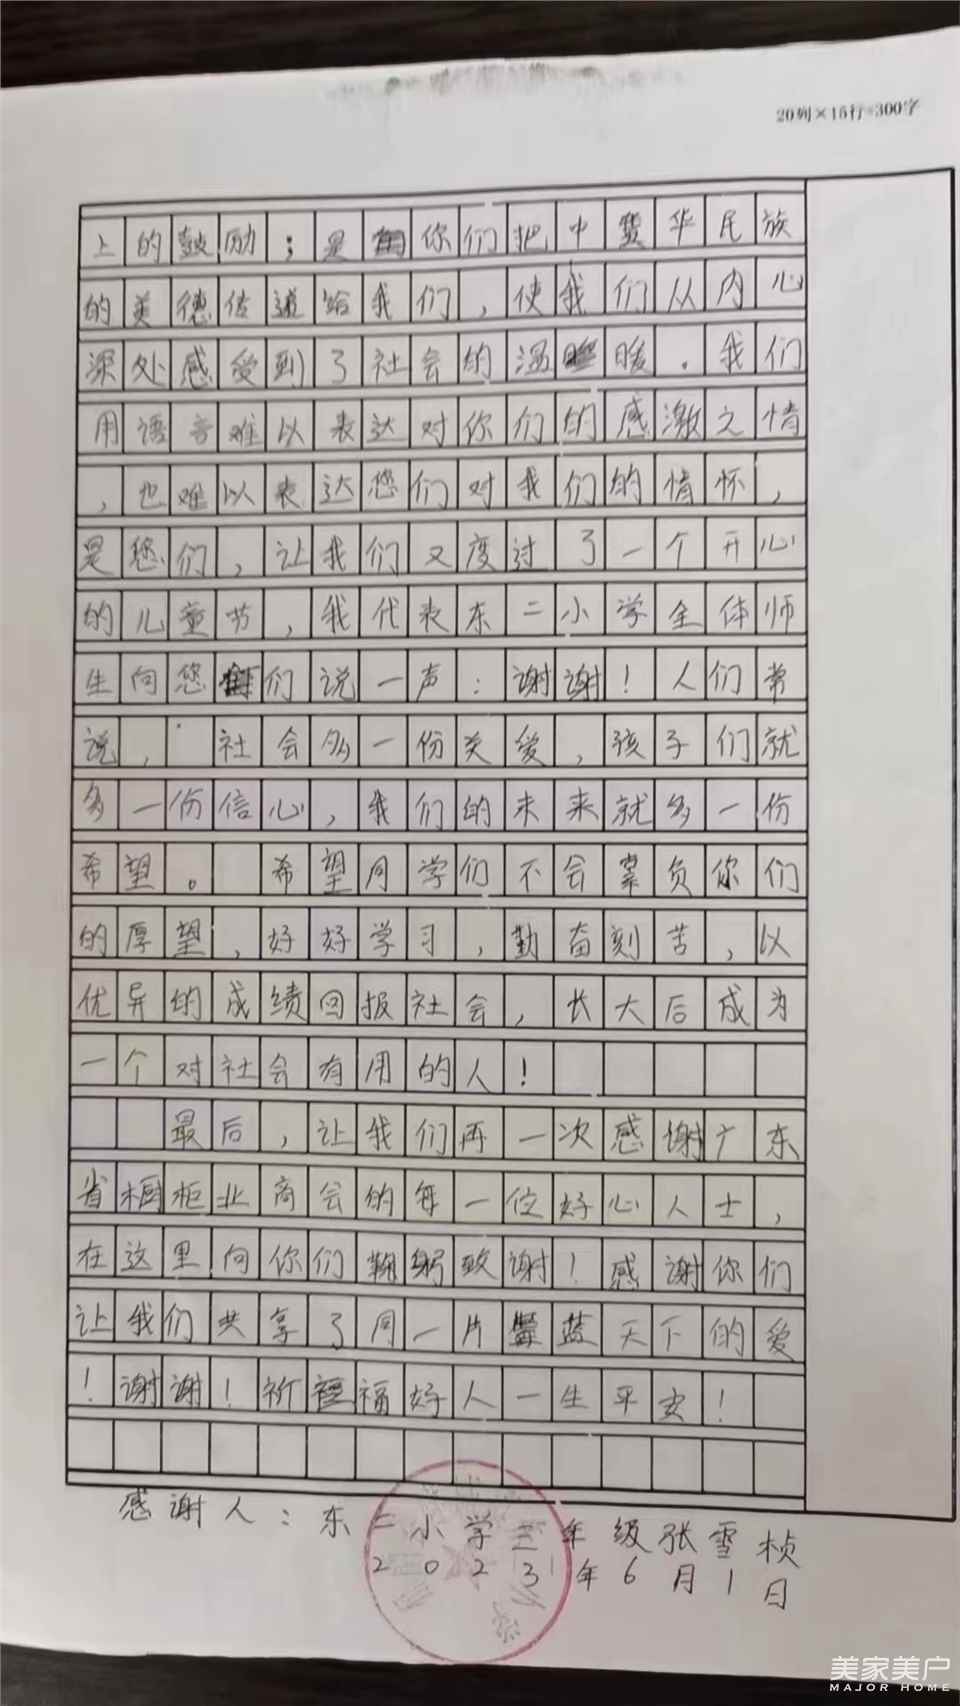 20列×15行=300字
上的鼓励；是你们把中华民族
的美德传递给我们，使我们从内心
深处感受到了社会的温暖．我们
用语言难以表达对你们的感激之情
，也难以表达您们对我们的情怀，
是您们，让我们又度过了一个开心
的儿童节，我代表东二小学全体师
生向您们说一声：谢谢！人们常
说，社会多一份关爱，孩子们就
多一份信心，我们的未来就多一份
希望。希望同学们不会辜负你们
的厚望，好好学习，勤奋刻苦，以
优异的成绩回报社会，长大后成为
一个对社会有用的人！
最后，让我们再一次感谢广东
省橱柜业商会的每一位好心人士，
在这里向你们鞠躬致谢！感谢你们
让我们共享了同一片蓝天下的爱
！谢谢！祈福好人一生平安！
感谢人：东二小学三年级张雪桢
2023年6月1日
美家美户
MAJOR HOME